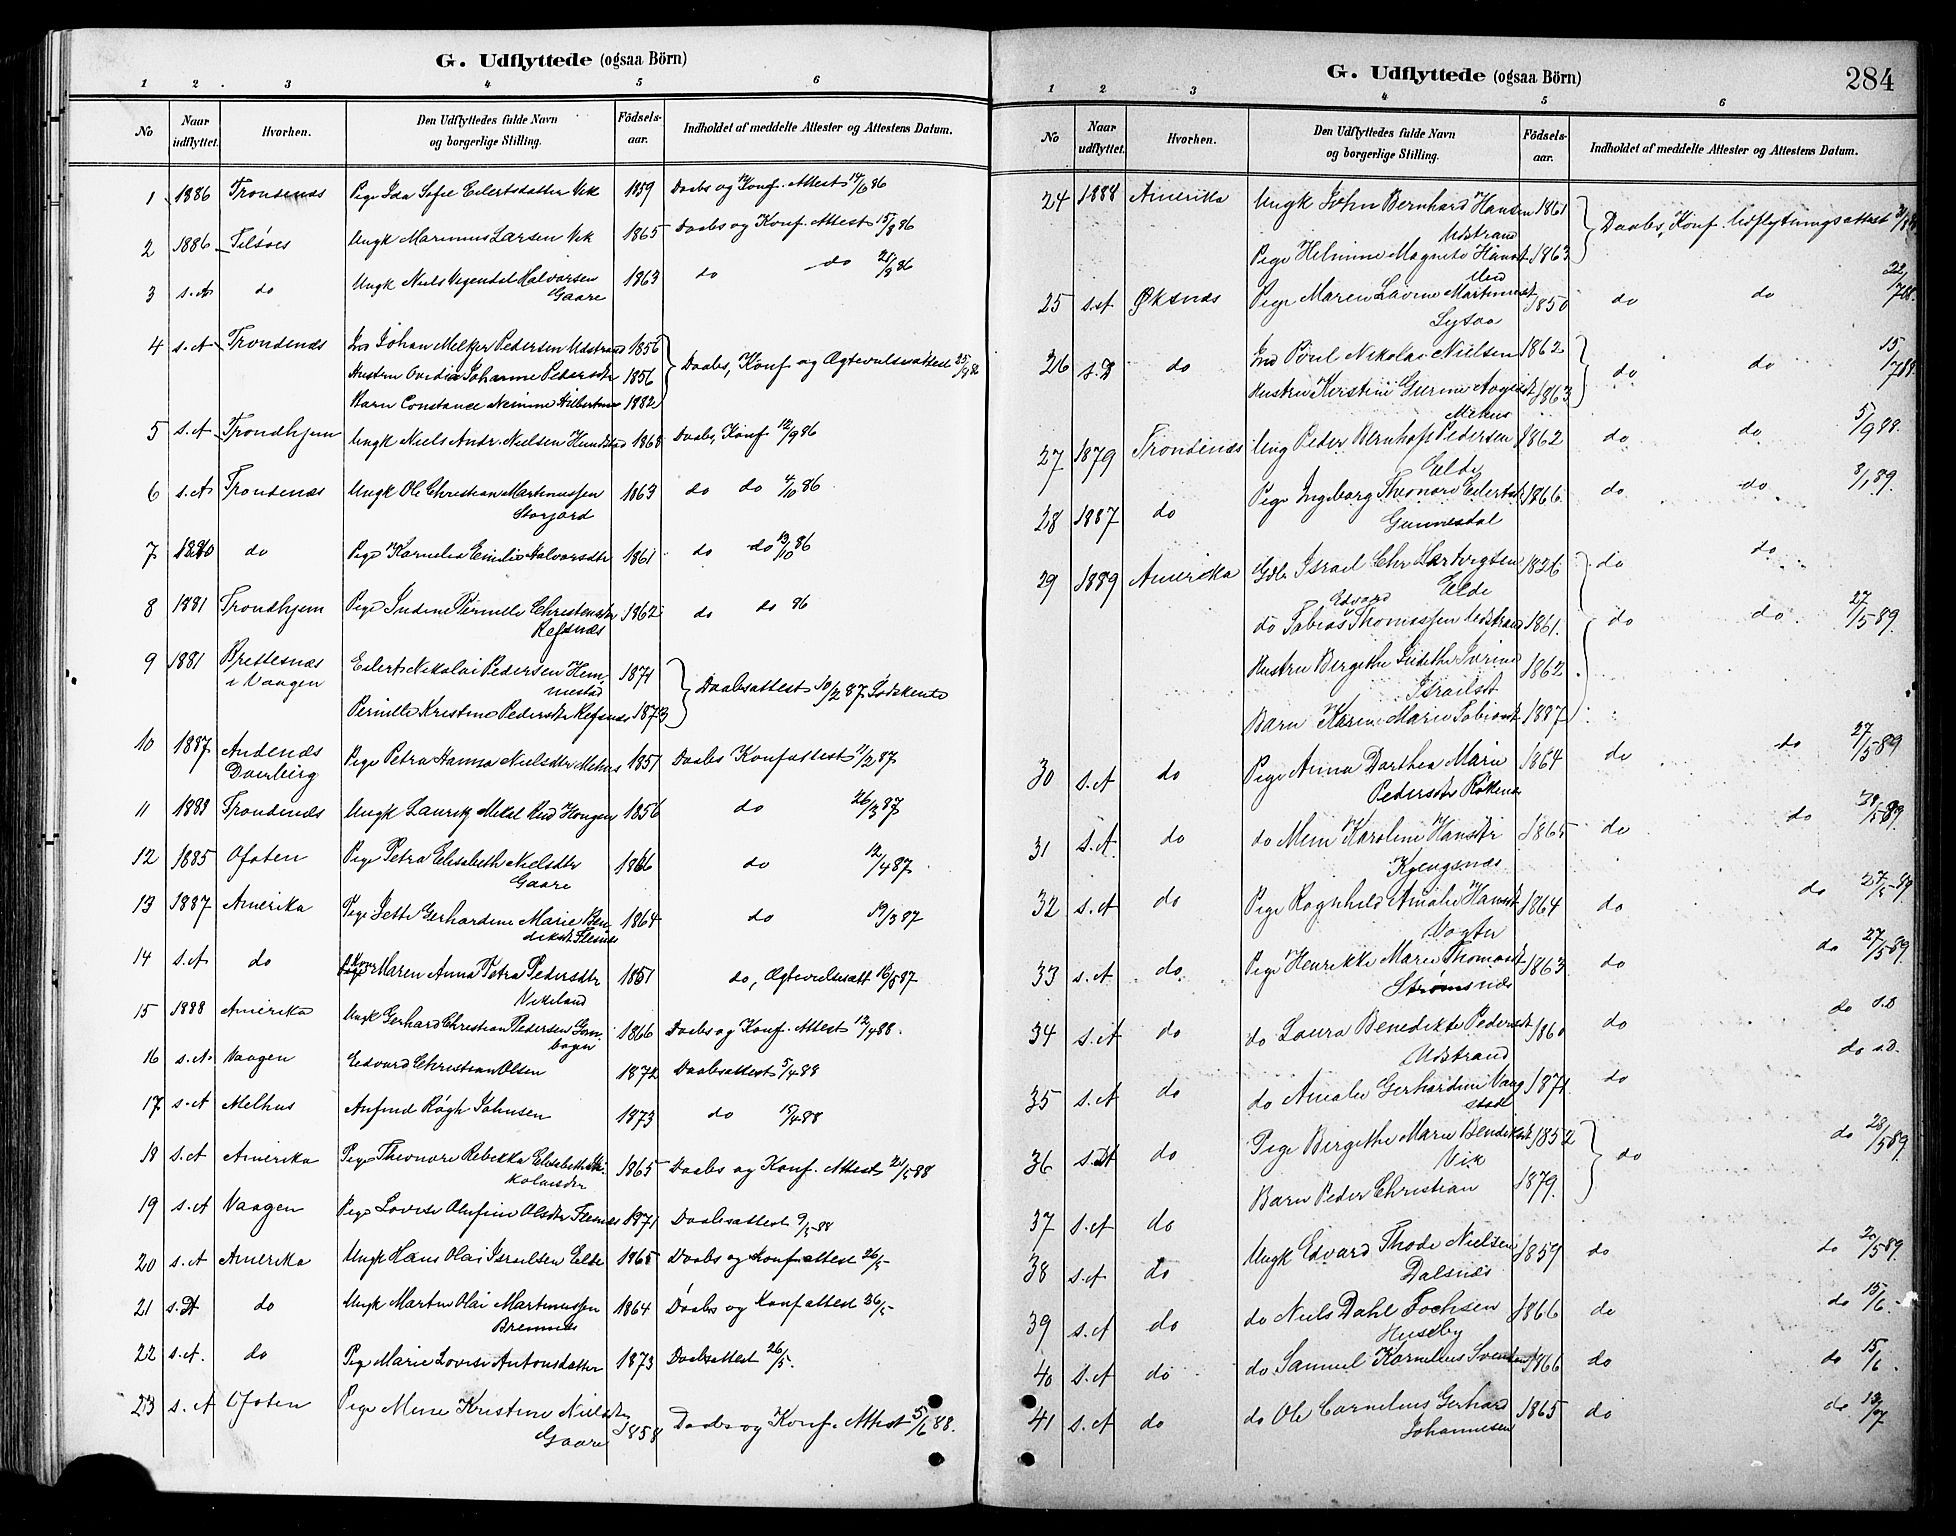 G. Udflyttede (ogsaa Börn)
1 2 3 4 5 6
No Naar udflyttet. Hvorhen. Den Udflyttedes fulde Navn og borgerlige Stilling. Födsels-aar. Indholdet af meddelte Attester og Attestens Datum.
1 1886 Trondenæs Pige Ida Sofie Eilertsdatter Vik 1859 Daabs og Konf. Attest 14/6 86
2 1886 Ungk Marinus Larsen Vik 1865 Daabs og Konf. Attest 15/8 86
3 s.A do Ungk Niels Halvorsen 1863 do do 21/8 86
Gaare
4 s.A Trondenæs Johan Melker Pedersen Udstrand 1856 Daabs, Konf og Ægtevielsesattest
Hustru Ovidia Johanne Pedersdtr 1856
Barn Constance 1882
5 s.A Trondhjem Ungk Niels Andr. Nielsen 1868 Daabs, Konf 12/9 86
6 s.A Trondenæs Ungk Ole Christian Martinussen 1863 do do 4/10 86
Storjord
7 do Pige Kornelia Emilie Halvorsdtr 1861 do do 13/10 86
8 1881 Trondhjem Pige Pernille Christensdtr 1862 do do 86
Refsnæs
9 1881 Brettesnæs Eilert Nikolai Pedersen Hem- 1871 Daabsattest 10/2 87
i Vaagen mestad
Pernille Kristine Pedersdtr Refsnæs 1873
10 1887 Andenæs Pige Petra Hanna Nielsdtr Mehus 1851 Daabs Konfattest 11/2 87
Daverberg
11 1883 Trondenæs Ungk Laurits Mikal 1856 do 26/3 87
12 1885 Ofoten Pige Petra Elisabeth Nielsdtr 1866 do 12/4 87
Gaare
13 1887 Amerika Pige Jette Gerhardine Marie Ben- 1864 do 19/3 87
dikst Flesnæs
14 s.A do Maren Anna Petra Pedersdtr 1851 do, Ægtevielsesatt 16/5 87
Vikeland
15 1888 Amerika Ungk Gerhard Christian Pedersen 1866 Daabs og Konf. Attest 12/4 88.
16 s.A Vaagen Edvard Christian Olsen 1872 Daabsattest 5/4 88
17 s.A Melhus Anfind Røgh Johnsen 1873 do 15/4 88
18 s.A Amerika Pige Theonore Rebekka Elisabeth Ni- 1865 Daabs og Konf. Attest 21/5 88
kolaisdtr
19 s.A Vaagen Pige Lovise Olufine Olsdtr Flesnæs 1871 Daabsattest 9/5 88
20 s.A Amerika Ungk Hans Olai Israelsen Elde 1865 Daabs og Konf.attest 26/5
21 s.A do Ungk Martin Olai Martinussen 1864 Daabs og Konfattest 26/5
Bremnes
22 s.A. do Pige Marie Lovise Antonsdatter 1873 Daabsattest 26/5.
23 s.A Ofoten Pige Mine Kristine Nielsdtr 1858 Daabs og Konf. Attest 5/6 88.
Gaare
G. Udflyttede (ogsaa Börn) 284
1 2 3 4 5 6
No Naar udflyttet. Hvorhen. Den Udflyttedes fulde Navn og borgerlige Stilling. Födsels-aar. Indholdet af meddelte Attester og Attestens Datum.
24 1888 Amerika Ungk John Bernhard Hansen 1861 Daabs, Konf. Udflytningsattest
Udstrand
Pige Helmine Magrete Hansdt 1863
25 s.A Øksnæs Pige Maren Lavine Martinusdt 1850 do do 22/7 88.
26 s.A do Ind Poul Nikolai Nielsen 1862 do do 15/7 88.
Hustru Kirstine Gurine 1863
Mehus
27 1879 Trondenæs Ung Peder Bernhoft Pedersen 1862 do do 5/9 88.
Elde
28 1887 do Pige Ingeborg Theonore Eilertsdt 1866 do do 3/1 89.
Gunnesdal
29 1889 Amerika Gdbr Israel Chr Hartvigsen 1826 do do
Elde
Edvard
do Tobias Thomassen Udstrand 1861. do do 27/5 89.
Hustru Bergithe Judithe Serine 1862
Israelsdt
Barn Karen Marie Tobiasdt 1887
30 s.A do Pige Anna Dorthea Marie 1864 do do 27/5 89
Pedersdtr Røkenæs
31 s.A. do do Mein Karoline Hansdtr 1865 do do 28/5 89.
Kjengsnæs
32 s.A do Pige Ragnhild Amalie Hansdt 1864 do do 27/5 89
Vogter
33 s.A do. Pige Henrikke Marie Thomasdt 1863 do do 27/5 89.
Strømsnæs
34 s.A do do Laura Benedikte Pedersdt 1860 do do s.D
Udstrand
35 s.A do do Amalie Gerhardine Vang 1871. do do s.D.
stad
36 s.A do Pige Bergithe Marie Bendiksdt 1852 do do 28/5 89.
Vik
Barn Peder Christian 1879.
37 s.A do
38 s.A do Ungk Edvard Thode Nielsen 1859 do do 20/5 89.
Dalsnæs
39 s.A do do Niels Dahl Tochsen 1866 do do 15/6
Huseby
40 s.A do do Samuel Kornelius Svendsen 1866 do do 15/6
41 s.A do do Ole Cornelius Gerhard 1865 do do 13/7
Johannesen